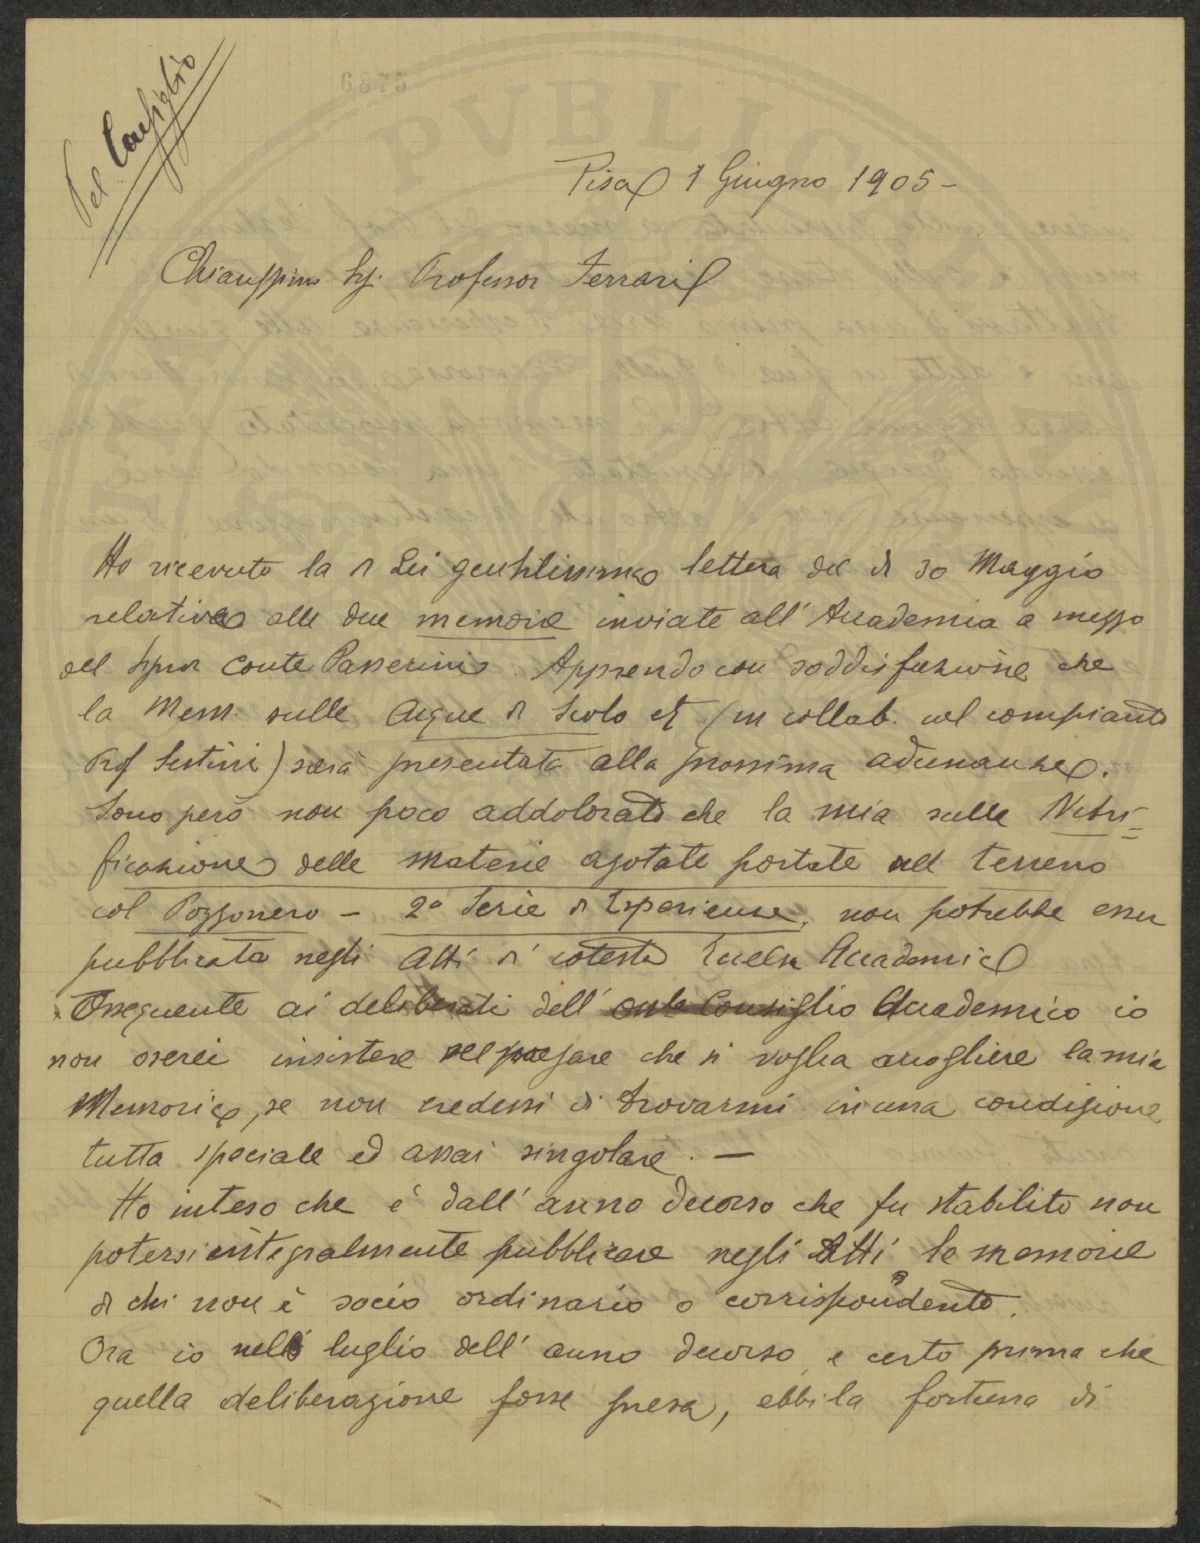 Pel Consiglio
6873
PVBLIC
Pisa 1 Giugno 1905 -
Chiarissimo Sig. Professor Ferrari
Ho ricevuto la di Lei gentilissima lettera del dì 30 Maggio
relativa alle due memorie inviate all' Accademia a mezzo
del Signor Conte Passerini. Apprendo con soddisfazione che
la Mem. sulle Acque di Scolo et (in collab. col compianto
Prof Sestini) sarà presentata alla prossima adunanza.
Sono però non poco addolorato che la mia sulla Nitri-
ficazione delle materie azotate portate nel terreno
col Pozzonero - 2a Serie di Esperienze, non potrebbe esser
pubblicata negli Atti di cotesta Accademia
Ossequente ai deliberati dell' Consiglio Accademico io
non oserei insistere nel pregare che si voglia accogliere la mia
Memoria, se non credessi di trovarmi in una condizione
tutta speciale ed assai singolare. -
Ho inteso che è dall' anno decorso che fu stabilito non
potersi integralmente pubblicare negli Atti le memorie
di chi non è socio ordinario o corrispondente.
Ora io nello luglio dell' anno decorso, e certo prima che
quella deliberazione fosse presa, ebbi la fortuna di